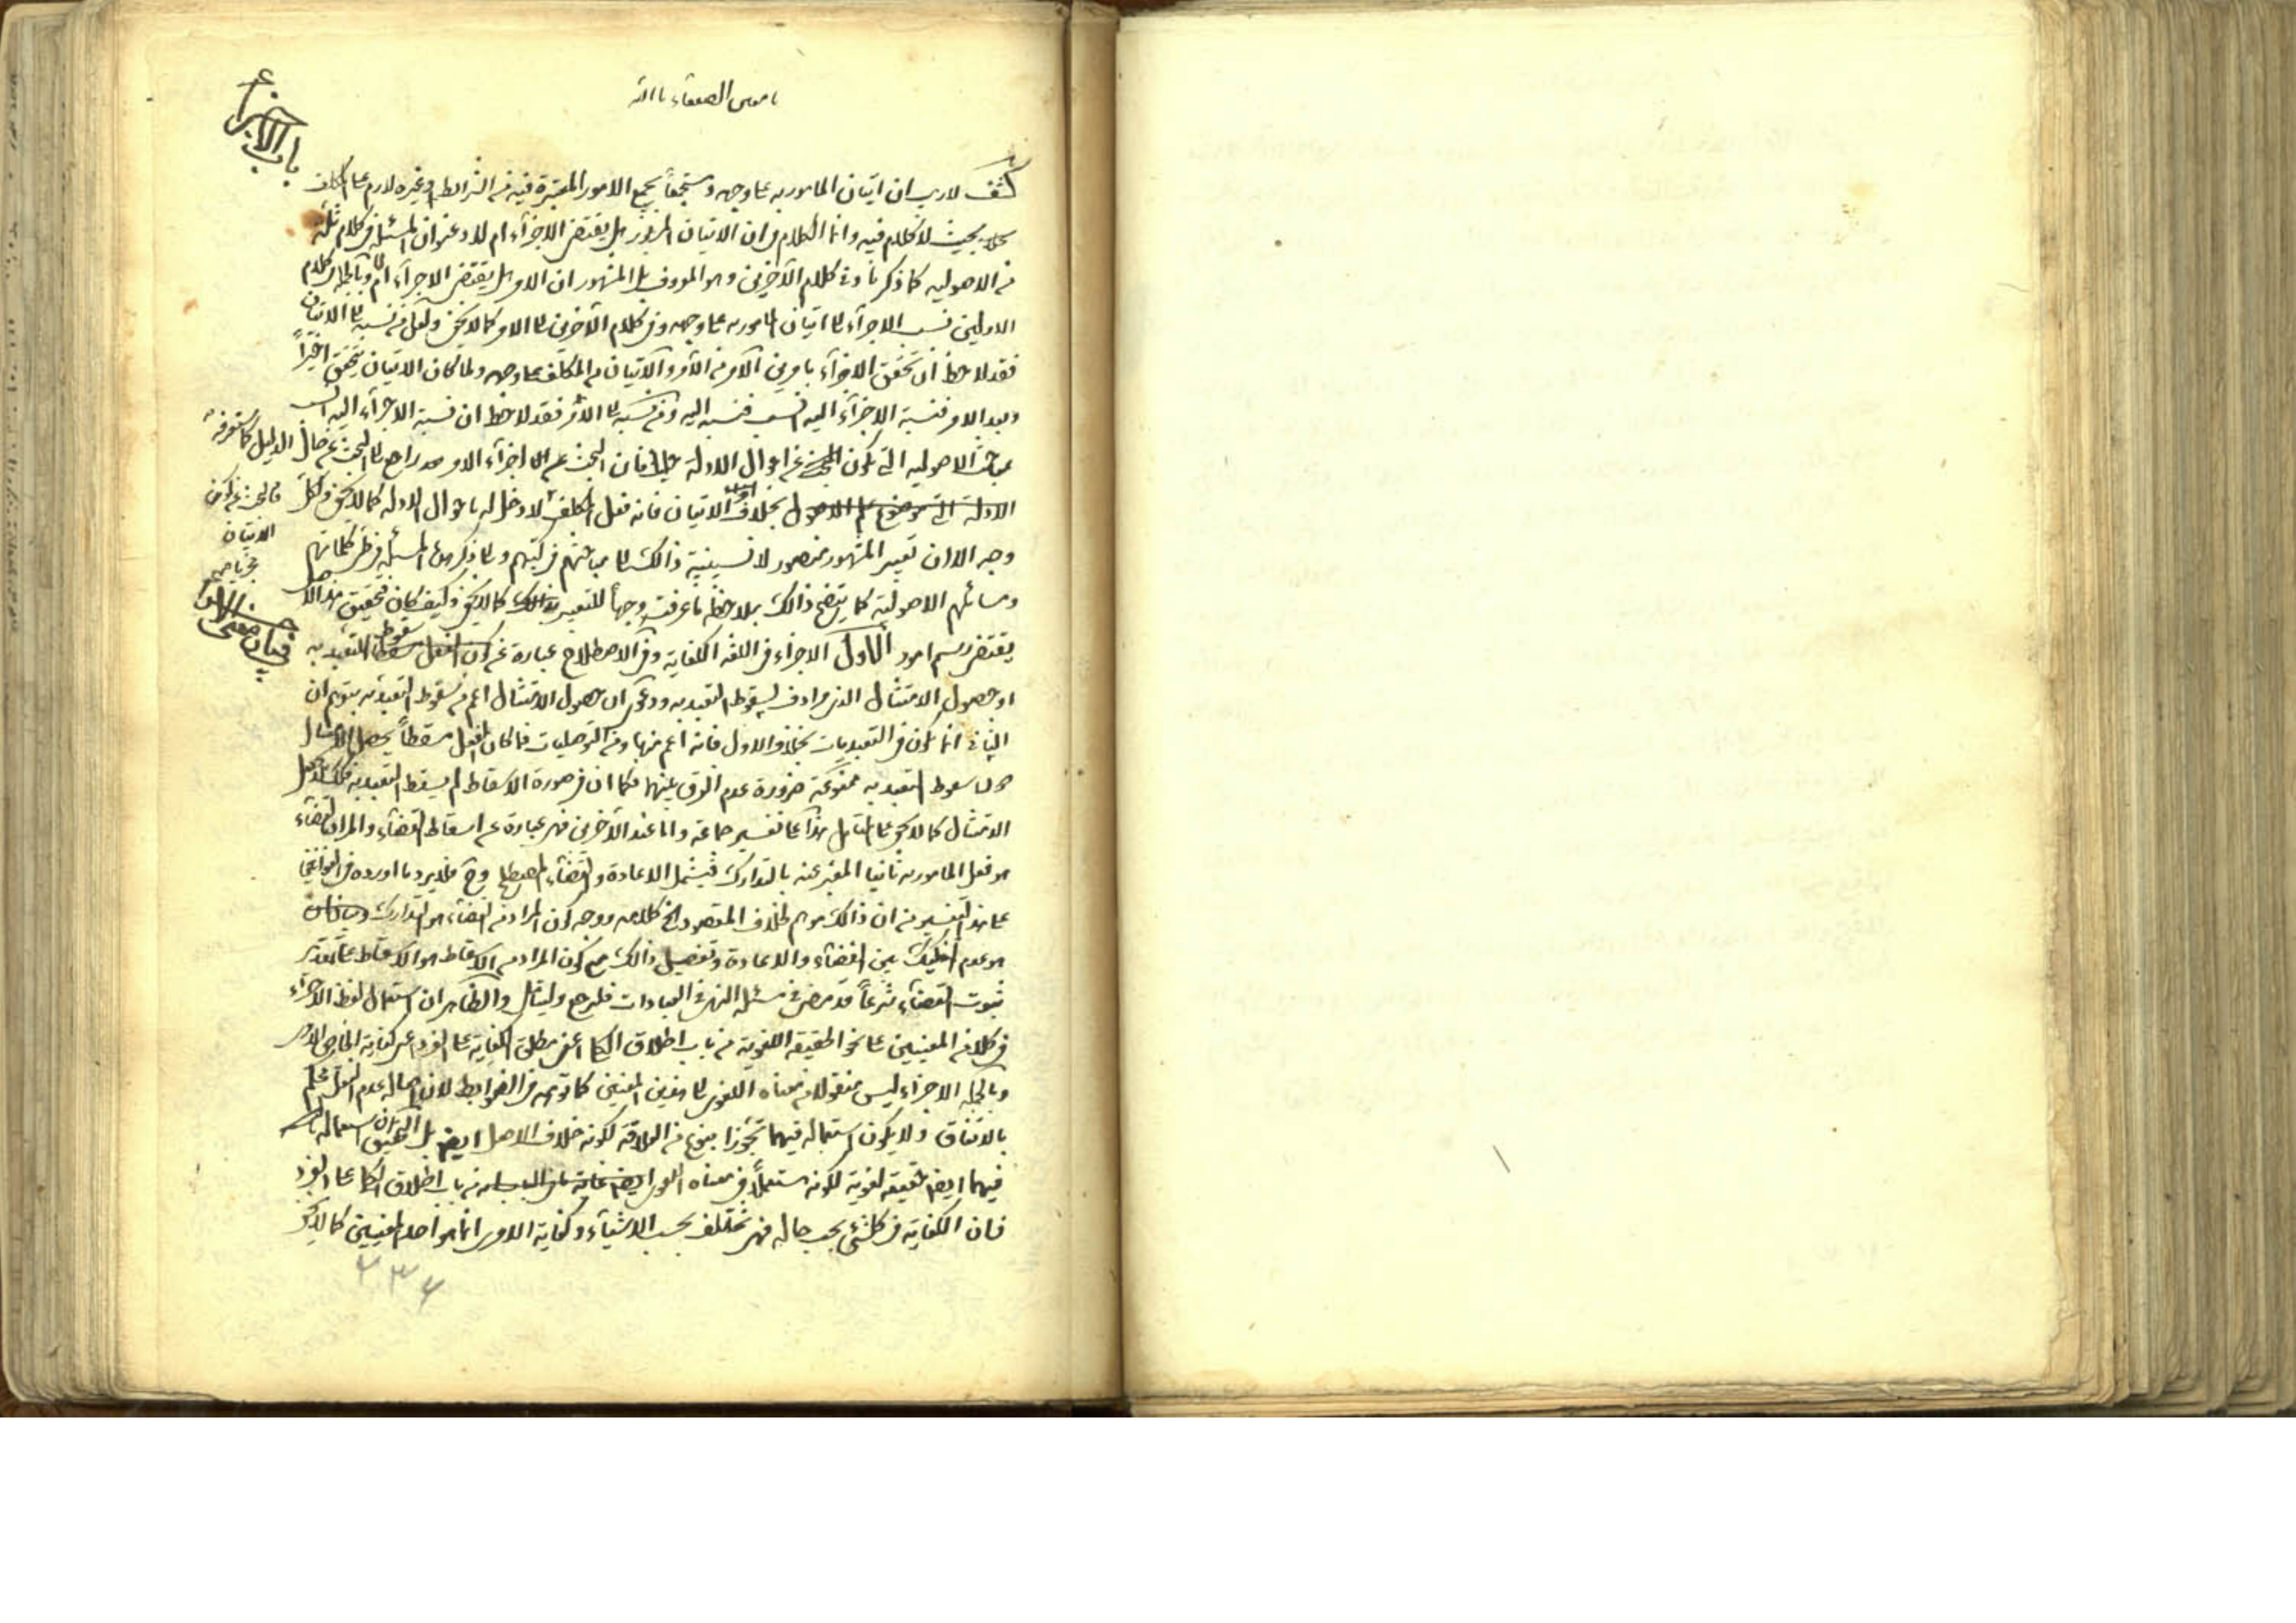 باب الاجزاء
يا معين الضعفاء يا الله
كشف لا ريب ان اتيان المامور به على وجهه ومستجمعاً لجميع الامور المعتبرة فيه من الشرائط وغيره لازم على المكلف
بحيث لا كلام فيه وانما الكلام في ان الاتيان المزبور هل يقتضى الاجزآء ام لا وعنوان المسئلة في كلام ثلة
من الاصوليه كما ذكرنا وفى كلام الآخرين وهو المعروف بل المشهور ان الامر هل يقتضى الاجزآء ام لا وبالجملة في كلام
الاولين نسب الاجزآء الى اتيان المامور به على وجهه وفى كلام الآخرين الى الامر كما لا يخفى ولعل من نسبه الى الاتيان
فقد لاحظ ان تحقق الاجزآء بامرين الامر من الآمر والاتيان من المكلف على وجهه ولما كان الاتيان يتحقق اخيراً
وبعد الامر فنسبة الاجزآء اليه انسب فنسبه اليه ومن نسبه الى الامر فقد لاحظ ان نسبة الاجزآء اليه انسب
بمباحث الاصوليه التى يكون البحث عن احوال الادلة فان البحث عن اجزآء الامر راجع الى البحث عن حال الدليل كما ستعرفه
بخلاف الاتيان فانه فعل المكلف لا دخل له باحوال الادله كما لا يخفى ولكل
فالبحث عن كون
الاتيان
مجزيا
وجه الا ان تعبير المشهور منصور لانسبيتة ذالك الى مباحثهم في كتبهم
ومسائلهم الاصولية كما يتضح ذالك بملاحظة ما عرفت وجهاً للتعبير كما لا يخفى وكيف كان فتحقيق هذا
فى بيان معنى الاجزاء
يقتضى رسم امور الاول الاجزاء في اللغه الكفاية وفى الاصطلاح عبارة عن كون الفعل مسقطا للتعبد به
او حصول الامتثال الذى مرادف لسقوط التعبد به ودعوى ان حصول الامتثال اعم من سقوط التعبد به بتوهم ان
الثانى انما يكون في التعبديات بخلاف الاول فانه اعم منها ومن التوصليات فما كان الفعل مسقطاً يحصل الامتثال
التعبد به ممنوعة ضرورة عدم الفرق بينهما فكما ان في صورة الاسقاط لم يسقط التعبد به فكذلك لم يحصل
الامتثال كما لا يخفى على المتامل هذا على تفسير جماعة واما عند الآخرين فهى عبارة عن اسقاط القضآء والمراد بالقضآء
هو فعل المامور به ثانيا المعبر عنه بالتدارك فيشمل الاعادة والقضآء المصطلح وح فلا يرد ما اورده في القوانين
على هذا التفسير من ان ذالك موهم لخلاف المقصود الخ كلامه ووجه كون المراد من القضآء هو التدارك
هو عدم التفكيك بين القضآء والاعادة وتفصيل ذالك مع كون المراد من الاسقاط هو الاسقاط على تقدير
ثبوت القضآء شرعاً قد مضى في مسئلة النهى في العبادات فليرجع وليتامل والظاهر ان استعمال لفظ الاجزآء
في كلا من المعنيين على نحو الحقيقة اللغوية من باب اطلاق الكلى اعنى مطلق الكفاية على الفرد اعنى كفاية الخاص
وبالجمله الاجزآء ليس منقولا من معناه اللغوى الى هذين المعنيين كما توهم في الضوابط لان اصاله عدم النقل محكم
بالاتفاق ولا يكون استعماله فيهما تجوزا بنوع من العلاقة لكونه خلاف الاصل ايضا بل التحقيق ان استعماله
فيهما ايضا حقيقه لغوية لكونه مستعملاً في معناه اللغوى من باب اطلاق الكلى على الفرد
فان الكفاية في كل شئى بحسب حاله فهى تختلف بحسب الاشيآء وكفاية الامر انما هو احد المعنيين كما لا يخفى